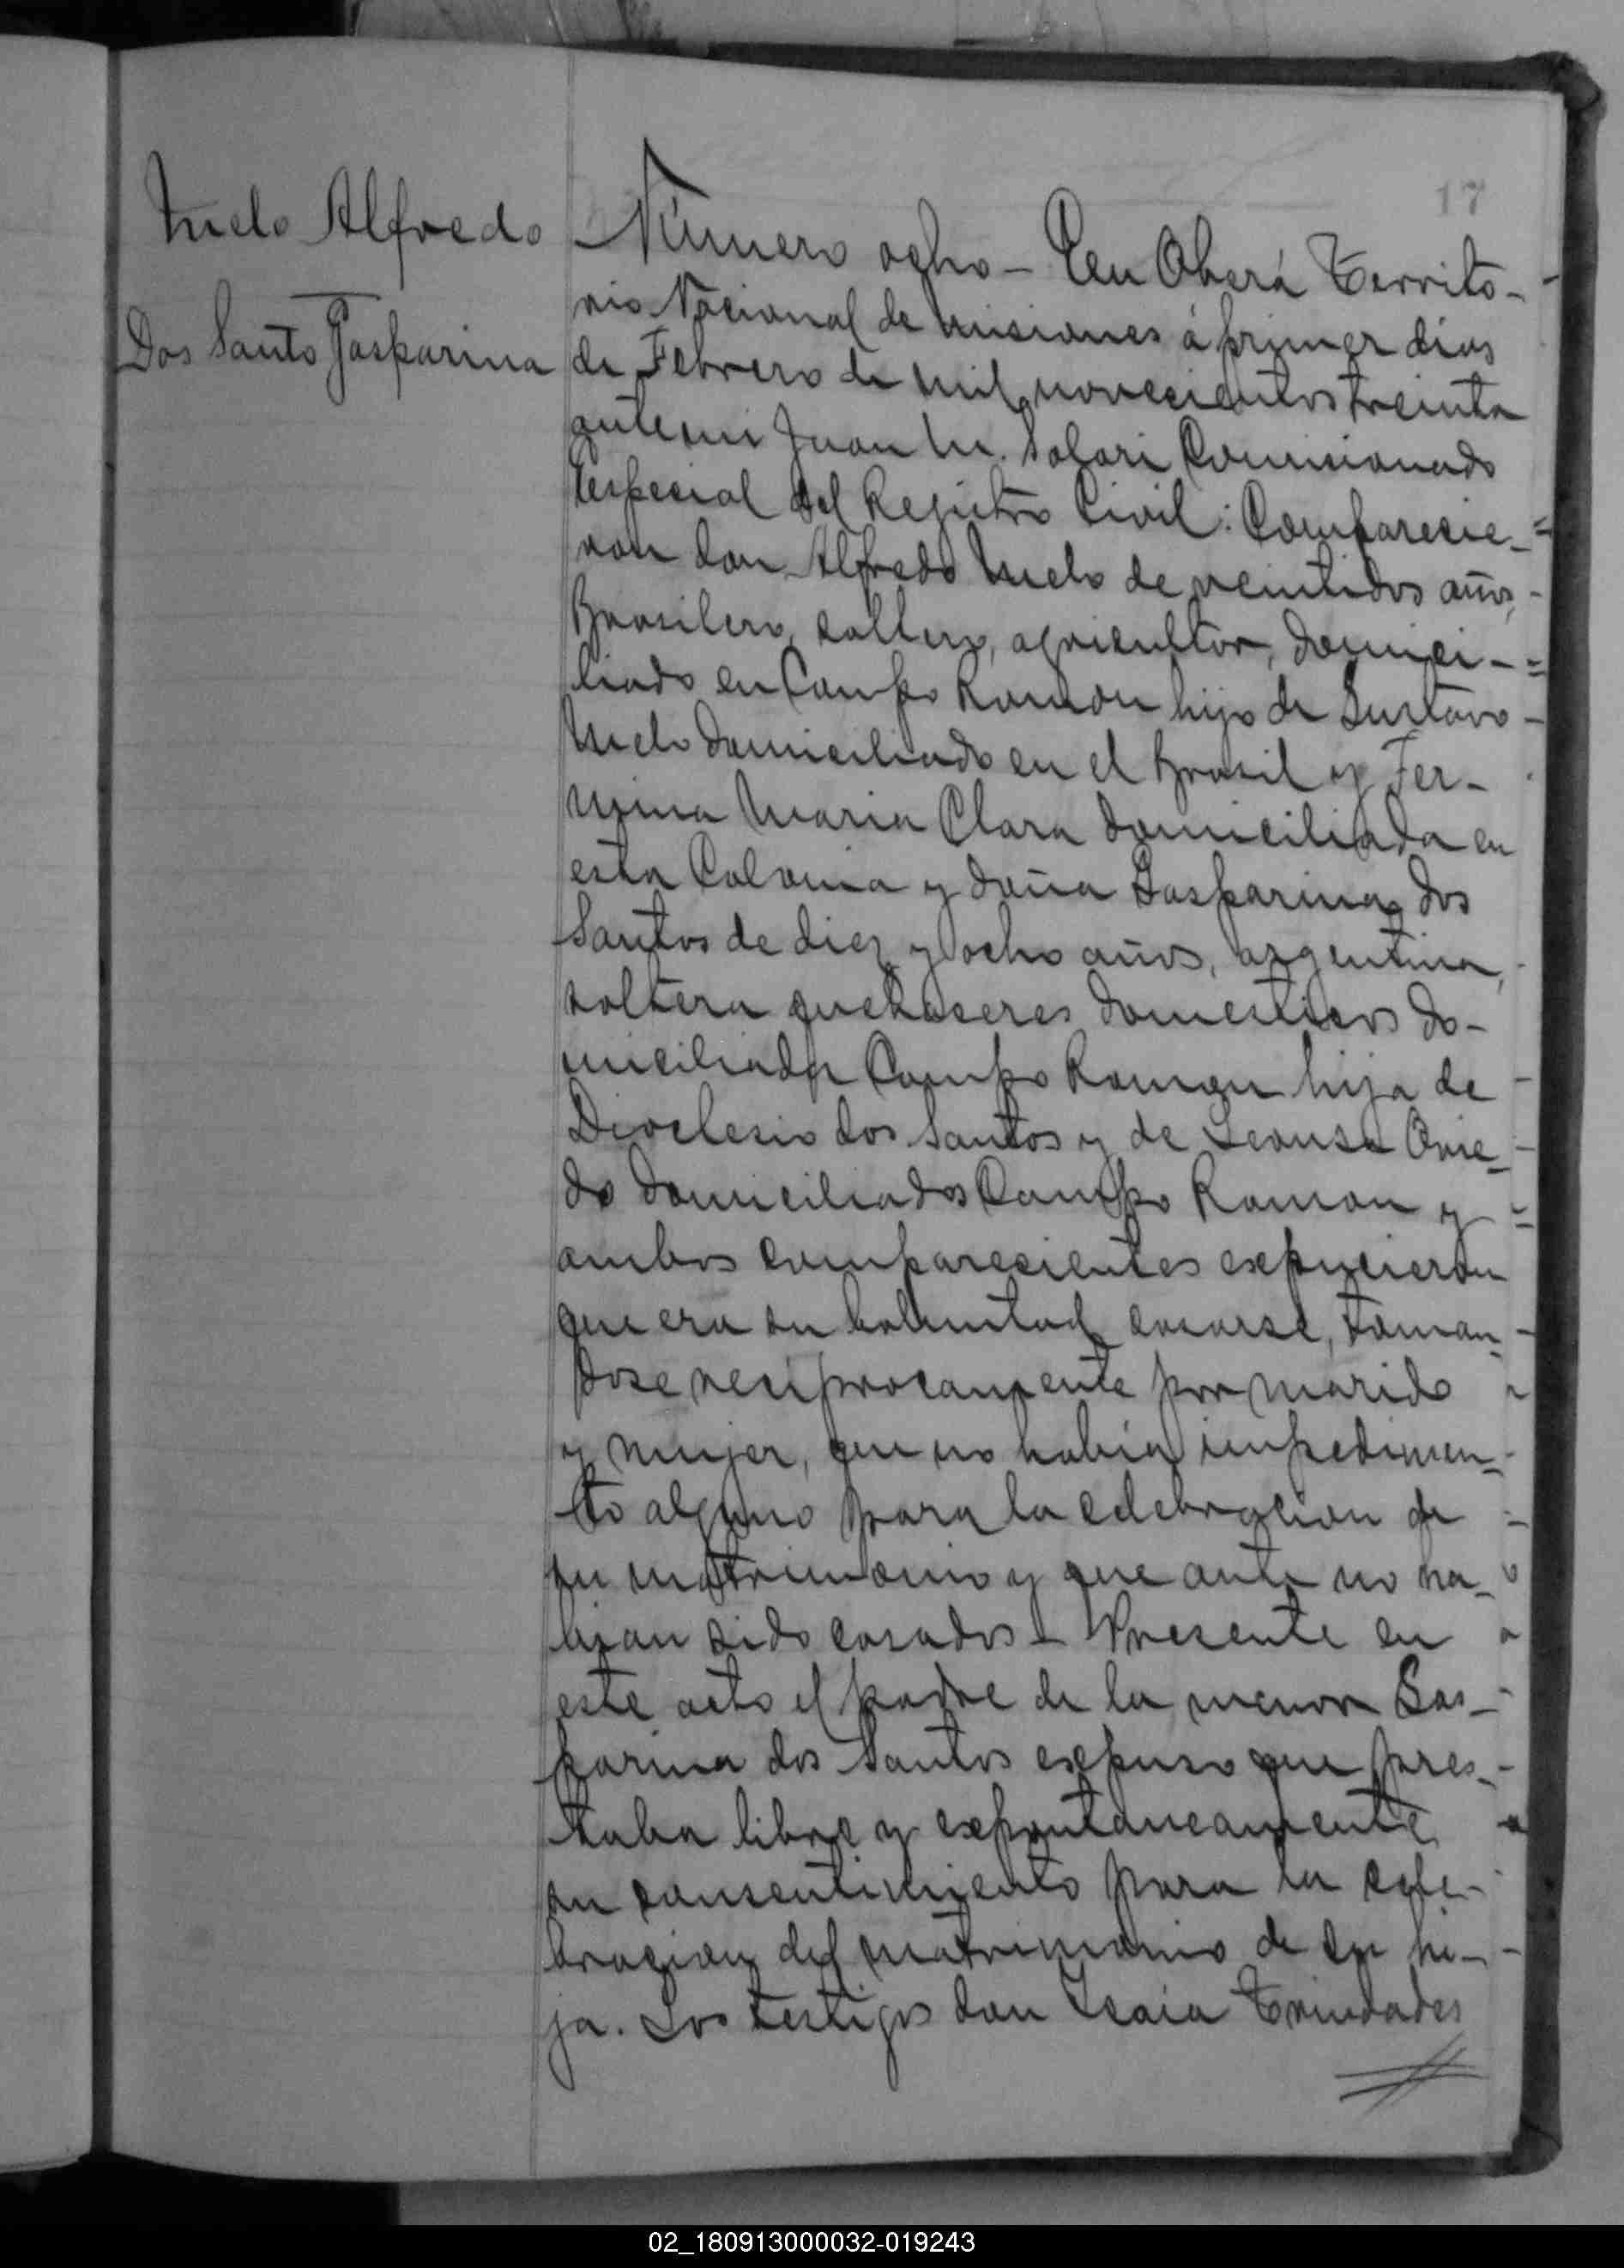 17
Melo Alfredo
Dos Santo Gasparina
Número ocho - En Oberá Territo-
rio Nacional de Misiones á primer dias
de Febrero de mil novecientos treinta
ante mi Juan M. Solari Comisionado
Especial del Registro Civil: Comparecie-
ron don Alfredo Melo de veintidos años,
Brasilero, soltero, agricultor, domici-
liado en Campo Ramon hijo de Gustavo
Melo domiciliado en el Brasil y Fer-
mina Maria Clara domiciliada en
esta Colonia y doña Gasparina dos
Santos de diez y ocho años, argentina,
soltera quehaceres domesticos do-
miciliada Campo Ramon hija de
Dioclesio dos Santos y de Leonsa Ovie-
do domiciliados Campo Ramon y
ambos comparecientes expucieron
que era su boluntad casarse, toman-
dose reciprocamente por marido
y mujer, que no habia impedimen-
to alguno para la celebracion de
su matrimonio y que ante no ha-
bian sido casados - Presente en
este acto el padre de la menor Gas-
parina dos Santos expuso que pres-
taba libre y expontaneamente
su consentimiento para la cele-
bracion del matrimonio de su hi-
ja. Los testigos don Isaia Trindades
02_180913000032-019243